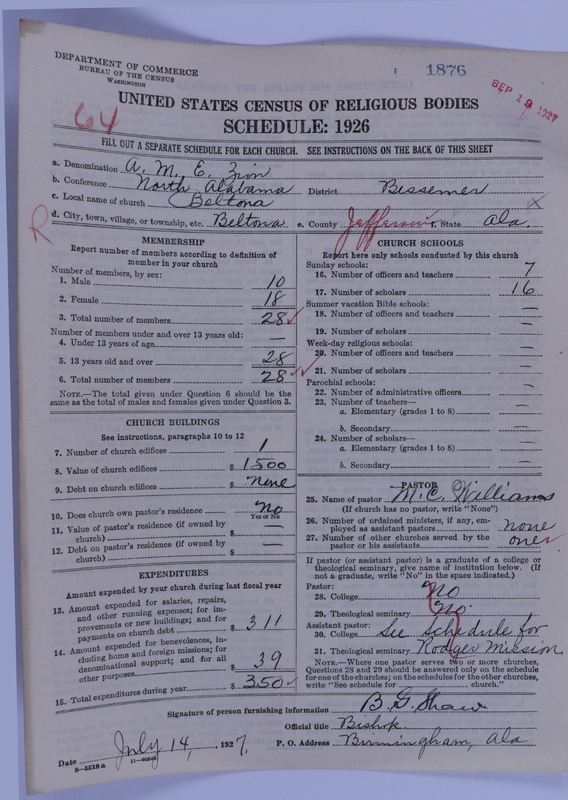 DEPARTMENT OF COMMERCE
BUREAU OF THE CENSUS
WASHINGTON
1876
SEP 19 1927
64
UNITED STATES CENSUS OF RELIGIOUS BODIES
SCHEDULE: 1926
FILL OUT A SEPARATE SCHEDULE FOR EACH CHURCH. SEE INSTRUCTIONS ON THE BACK OF THIS SHEET
a. Denomination A. M. E. Zion
b. Conference North Alabama District Bessemer
c. Local name of church Beltona x
d. City, town, village, or township, etc. Beltona e. County Jefferson f. State Ala.
R
MEMBERSHIP
Report number of members according to definition of
member in your church
Number of members, by sex:
1. Male 10
2. Female 18
3. Total number of members 28 ✓
Number of members under and over 13 years old:
4. Under 13 years of age —
5. 13 years old and over 28
6. Total number of members 28 ✓✓
NOTE.—The total given under Question 6 should be
same as the total of males and females given under Question 3.
CHURCH BUILDINGS
See instructions, paragraphs 10 to 12
7. Number of church edifices 1
8. Value of church edifices $ 1500
9. Debt on church edifices $ None
10. Does church own pastor's residence No
Yes or No
11. Value of pastor's residence (if owned by
church) $ —
12. Debt on pastor's residence (if owned by
church) $ —
EXPENDITURES
Amount expended by your church during last fiscal year
13. Amount expended for salaries, repairs,
and other running expenses; for im-
provements or new buildings; and for
payments on church debt $ 311
14. Amount expended for benevolences, in-
cluding home and foreign missions; for
denominational support; and for all
other purposes $ 39
15. Total expenditures during year $ 350 ✓
CHURCH SCHOOLS
Report here only schools conducted by this church
Sunday schools:
16. Number of officers and teachers 7
17. Number of scholars 16
Summer vacation Bible schools:
18. Number of officers and teachers —
19. Number of scholars —
Week-day religious schools:
20. Number of officers and teachers —
21. Number of scholars —
Parochial schools:
22. Number of administrative officers —
23. Number of teachers—
a. Elementary (grades 1 to 8) —
b. Secondary —
24. Number of scholars—
a. Elementary (grades 1 to 8) —
b. Secondary —
PASTOR
25. Name of pastor M. C. Williams
(If church has no pastor, write "None")
26. Number of ordained ministers, if any, em-
ployed as assistant pastors none
27. Number of other churches served by the
pastor or his assistants one ✓
If pastor (or assistant pastor) is a graduate of a college or
theological seminary, give name of institution below. (If
not a graduate, write "No" in the space indicated.)
Pastor:
28. College No
29. Theological seminary No.
Assistant pastor:
30. College See Schedule for
31. Theological seminary Rodges Mission
NOTE.—Where one pastor serves two or more churches,
Questions 28 and 29 should be answered only on the schedule
for one of the churches; on the schedules for the other churches,
write "See schedule for church."
Signature of person furnishing information B. G. Shaw
Official title Bishop
Date July 14, 1927. P. O. Address Birmingham, Ala
8-5518a